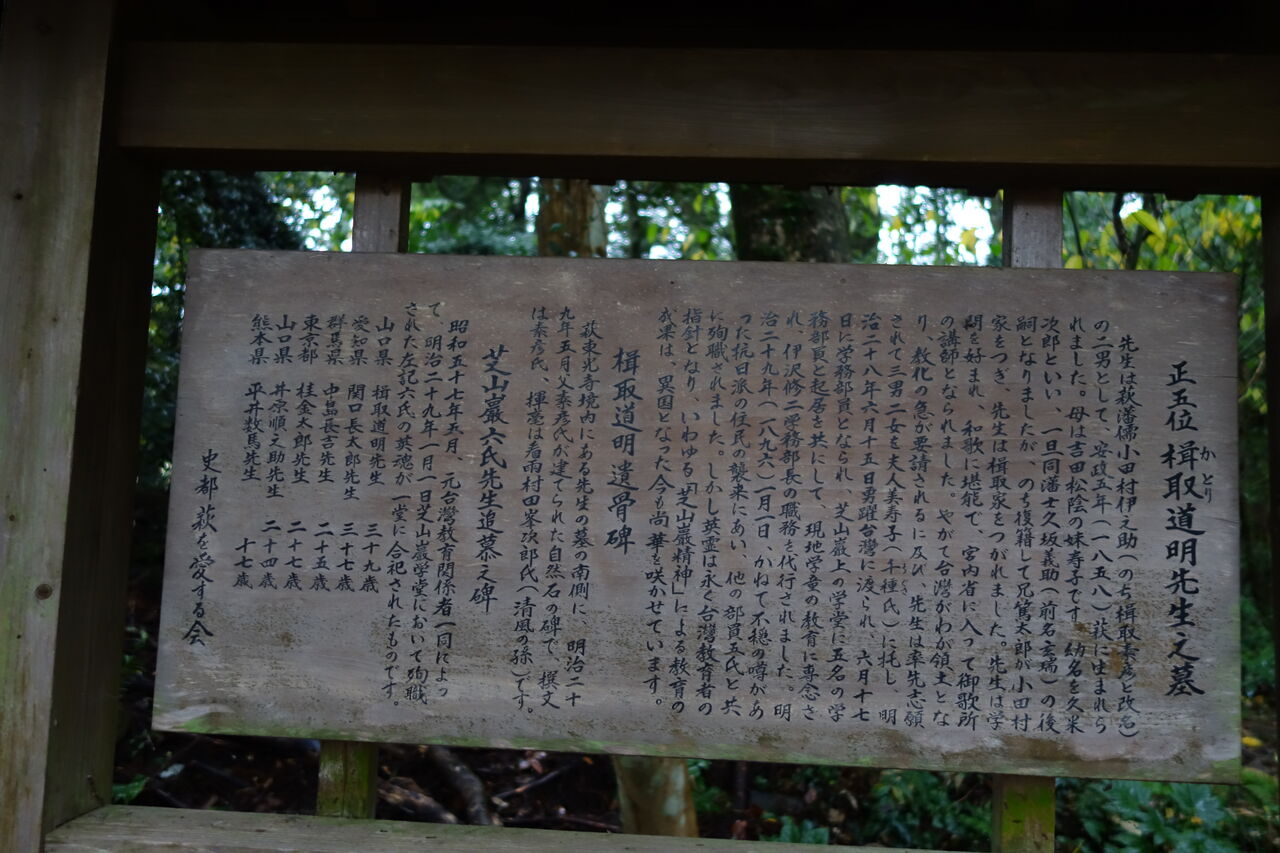 正五位 楫取道明先生之墓
かとり
先生は萩藩儒小田村伊之助(のち楫取素彦と改名)
の二男として、安政五年(一八五八)萩に生まれら
れました。母は吉田松陰の妹寿子です。幼名を久米
次郎といい、一旦同藩士久坂義助(前名玄瑞)の後
嗣となりましたが、のち復籍して兄篤太郎が小田村
家をつぎ、先生は楫取家をつがれました。先生は学
問を好まれ、和歌に堪能で、宮内省に入って御歌所
の講師となられました。やがて台湾がわが領土とな
り、教化の急が要請されるに及び、先生は率先志願
されて三男二女を夫人美寿子(千種氏)に托し、明
治二十八年六月十五日勇躍台湾に渡られ、六月十七
日に学務部員となられ、芝山巌上の学堂に五名の学
務部員と起居を共にして、現地学童の教育に専念さ
れ、伊沢修二学務部長の職務を代行されました。明
治二十九年(一八九六)一月一日、かねて不穏の噂があ
った抗日派の住民の襲来にあい、他の部員五氏と共
に殉職されました。しかし英霊は永く台湾教育者の
指針となり、いわゆる「芝山巌精神」による教育の
成果は、異国となった今も尚華を咲かせています。
楫取道明遺骨碑
萩東光寺境内にある先生の墓の南側に、明治二十
九年五月父素彦氏が建てられた自然石の碑で、撰文
は素彦氏、揮毫は看雨村田峯次郎氏(清風の孫)です。
芝山巖六氏先生追慕之碑
昭和五十七年五月 元台湾教育関係者一同によっ
て、明治二十九年一月一日芝山巌学堂において殉職
された左記六氏の英魂が一堂に合祀されたものです。
山口県 楫取道明先生 三十九歳
愛知県 関口長太郎先生 三十七歳
群馬県 中島長吉先生 二十五歳
東京都 桂金太郎先生 二十七歳
山口県 井原順之助先生 二十四歳
熊本県 平井数馬先生 十七歳
史都萩を愛する会